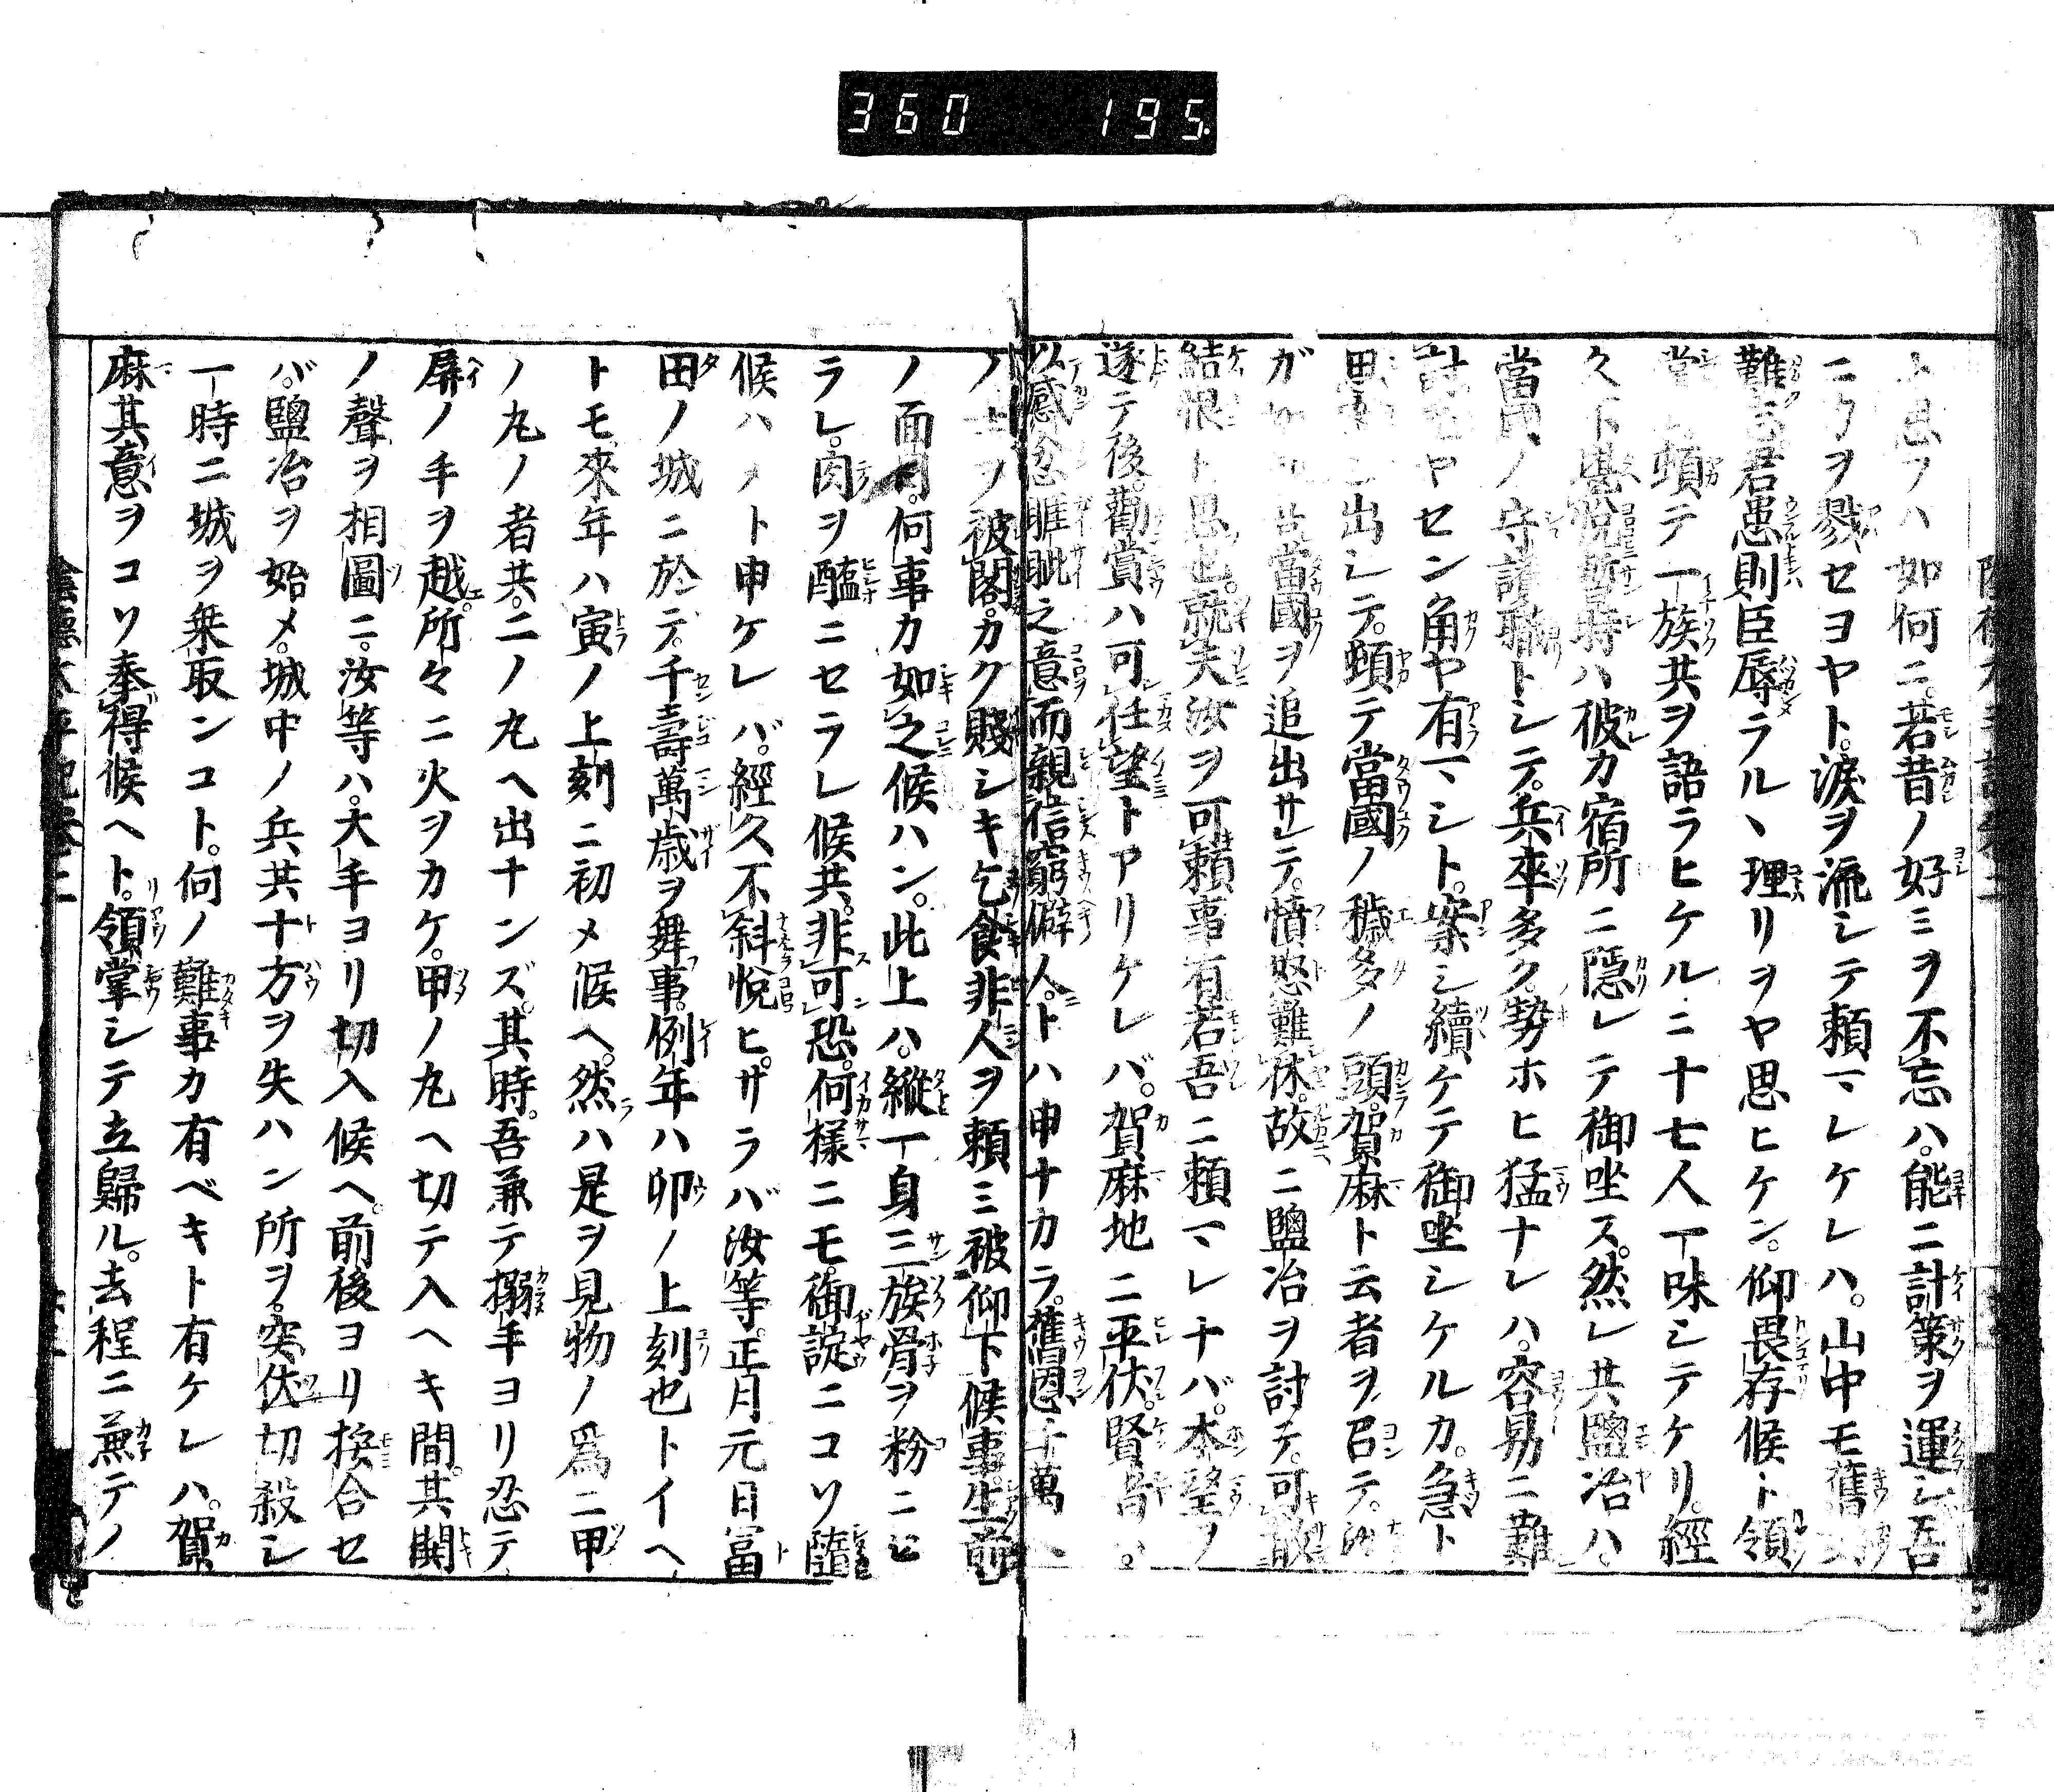 360 195.
ヲ思フハ如何ニ。若昔ノ好ミヲ不忘ハ。能ニ計策ヲ運シ吾
ヲ戮セヨヤト。涙ヲ流シテ頼マレケレハ。山中モ舊
難君患則臣辱ラルヽ理リヲヤ思ヒケン。仰畏存候ト領
掌頓テ一族共ヲ語ラヒケルニ十七人一味シテケリ。經
久下悦暫時ハ彼カ宿所ニ隱レテ御坐ス。然レ共鹽冶ハ。
當ノ守護職トシテ。兵卒多ク勢ホヒ猛ナレハ。容易ニ難
討ヤセン角ヤ有マシト。案シ續ケテ御坐シケルカ。急ト
思出シテ。頓テ當國ノ穢多ノ頭。賀麻ト云者ヲ召テ。
ガ當國ヲ追出サレテ。憤怒難休。故ニ鹽冶ヲ討テ。可散
結恨ト思也。就夫汝ヲ可頼事有若吾ニ頼マレナバ。本望ノ
遂テ後。勸賞ハ可任望トアリケレバ。賀麻地ニ平伏。賢
以感忿睚眦之意而親信窮僻人。トハ申ナカラ。舊恩千萬
ノ士ヲ被閣。カク賤シキ乞食非人ヲ頼ミ被仰下候事。生前
ノ面目。何事カ如之候ハン。此上ハ。縱一身三族骨ヲ粉ニセ
ラレ。肉ヲ醢ニセラレ候共。非可恐。何樣ニモ。御諚ニコソ隨
候ハメト申ケレバ。經久不斜悦ヒ。サラバ汝等。正月元日冨
田ノ城ニ於テ。千壽萬歳ヲ舞事。例年ハ卯ノ上刻也トイヘ
トモ。來年ハ寅ノ上刻ニ初メ候ヘ。然ハ是ヲ見物ノ爲ニ甲
ノ丸ノ者共。二ノ丸ヘ出ナンズ。其時。吾兼テ搦手ヨリ忍テ
屏ノ手ヲ越。所々ニ火ヲカケ。甲ノ丸ヘ切テ入ヘキ間。其鬨
ノ聲ヲ相圖ニ。汝等ハ。大手ヨリ切入候ヘ。前後ヨリ按合セ
バ。鹽冶ヲ始メ。城中ノ兵共十方ヲ失ハン所ヲ。突伏切殺シ
一時ニ城ヲ乗取ンコト。何ノ難事カ有ベキト有ケレハ。賀
麻其意ヲコソ奉得候ヘト。領掌シテ立歸ル。去程ニ兼テノ